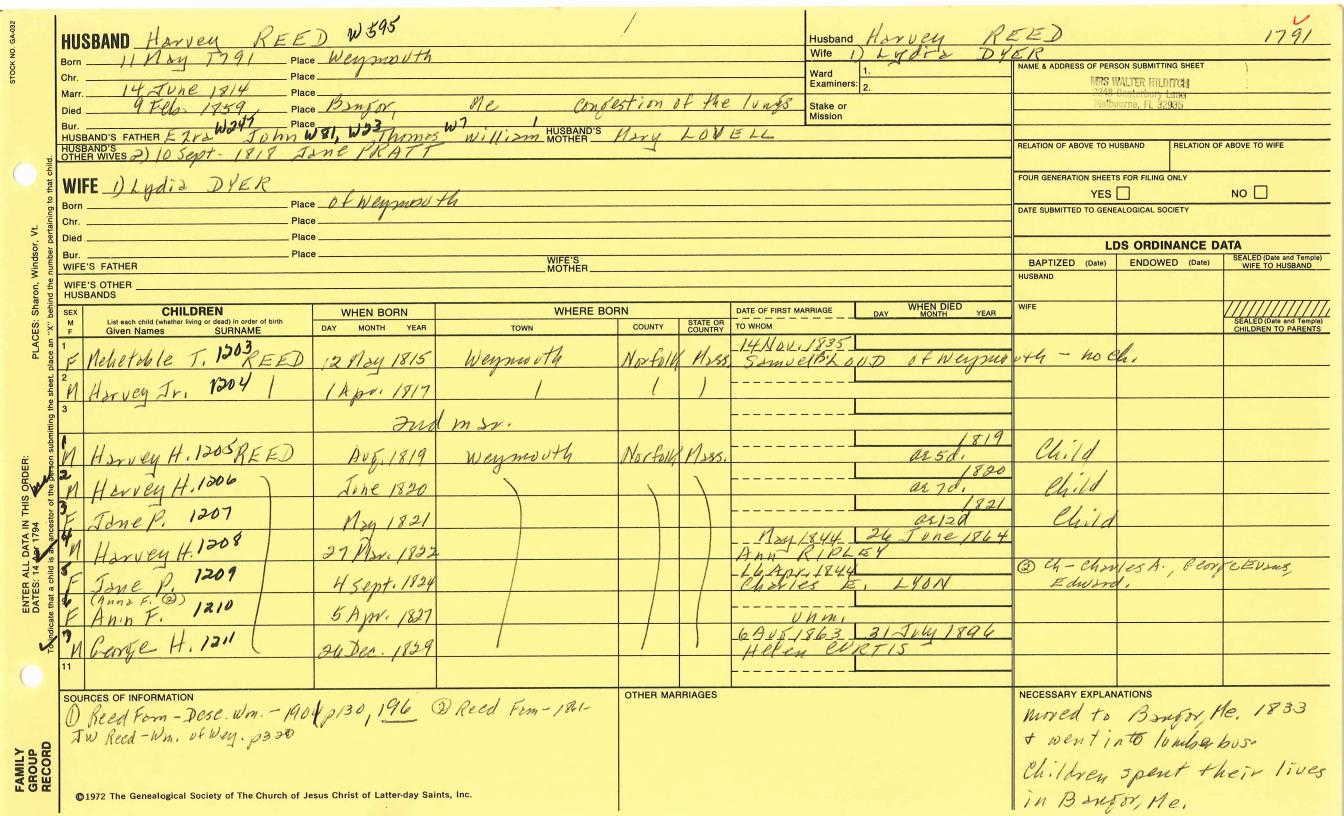 STOCK NO. GA-032
HUSBAND Harvey REED W595
Born 11 May 1791 Place Weymouth
Chr. Place
Marr. 14 June 1814 Place
Died 9 Feb. 1859 Place Bangor, Me Congestion of the lungs
Bur. Place
HUSBAND'S FATHER Ezra W247 John W81, W23, Thomas W7 William 1 HUSBAND'S MOTHER Mary LOVELL
HUSBAND'S OTHER WIVES 2) 10 Sept. 1818 Jane PRATT
WIFE 1) Lydia DYER
Born Place of Weymouth
Chr. Place
Died Place
Bur. Place
WIFE'S FATHER WIFE'S MOTHER
WIFE'S OTHER HUSBANDS
Husband Harvey REED 1791
Wife 1) Lydia DYER
Ward Examiners: 1.
2.
Stake or Mission
NAME & ADDRESS OF PERSON SUBMITTING SHEET
MRS WALTER HILDITCH
Melbourne, FL 32935
RELATION OF ABOVE TO HUSBAND RELATION OF ABOVE TO WIFE
FOUR GENERATION SHEETS FOR FILING ONLY
YES NO
DATE SUBMITTED TO GENEALOGICAL SOCIETY
LDS ORDINANCE DATA
BAPTIZED (Date) ENDOWED (Date) SEALED (Date and Temple) WIFE TO HUSBAND
HUSBAND
WIFE
SEALED (Date and Temple) CHILDREN TO PARENTS
SEX M F CHILDREN WHEN BORN WHERE BORN DATE OF FIRST MARRIAGE WHEN DIED
List each child (whether living or dead) in order of birth
Given Names SURNAME DAY MONTH YEAR TOWN COUNTY STATE OR COUNTRY TO WHOM DAY MONTH YEAR
1 F Mehetable T. 1203 REED 12 May 1815 Weymouth Norfolk Mass. 14 Nov. 1835 Samuel LOUD of Weymouth - no ch.
2 M Harvey Jr. 1204 1 Apr. 1817
3 2nd mar.
1 M Harvey H. 1205 REED Aug. 1819 Weymouth Norfolk Mass. 1819 ae 5d. Child
2 M Harvey H. 1206 June 1820 1820 ae 7d. Child
3 F Jane P. 1207 May 1821 1821 ae 12d Child
4 M Harvey H. 1208 27 Mar. 1822 May 1844 26 June 1864
Ann RIPLEY
5 F Jane P. 1209 4 Sept. 1824 16 Apr. 1844
Charles E. LYON ② Ch - Charles A., George Evans, Edward.
(Anna F. ②)
6 F Ann F. 1210 5 Apr. 1827 unm.
7 M George H. 1211 26 Dec. 1829 6 Aug 1863 31 July 1896
Helen CURTIS
11
SOURCES OF INFORMATION
① Reed Fam - Desc. Wm. - 1901 p130, 196 ② Reed Fam - 1861-
JW Reed - Wm. of Wey. p320
OTHER MARRIAGES
NECESSARY EXPLANATIONS
moved to Bangor, Me. 1833
& went into lumber bus.
Children spent their lives
in Bangor, Me.
©1972 The Genealogical Society of The Church of Jesus Christ of Latter-day Saints, Inc.
FAMILY GROUP RECORD
ENTER ALL DATA IN THIS ORDER:
DATES: 14 Apr 1794
PLACES: Sharon, Windsor, Vt.
To indicate that a child is an ancestor of the person submitting the sheet, place an "X" behind the number pertaining to that child.